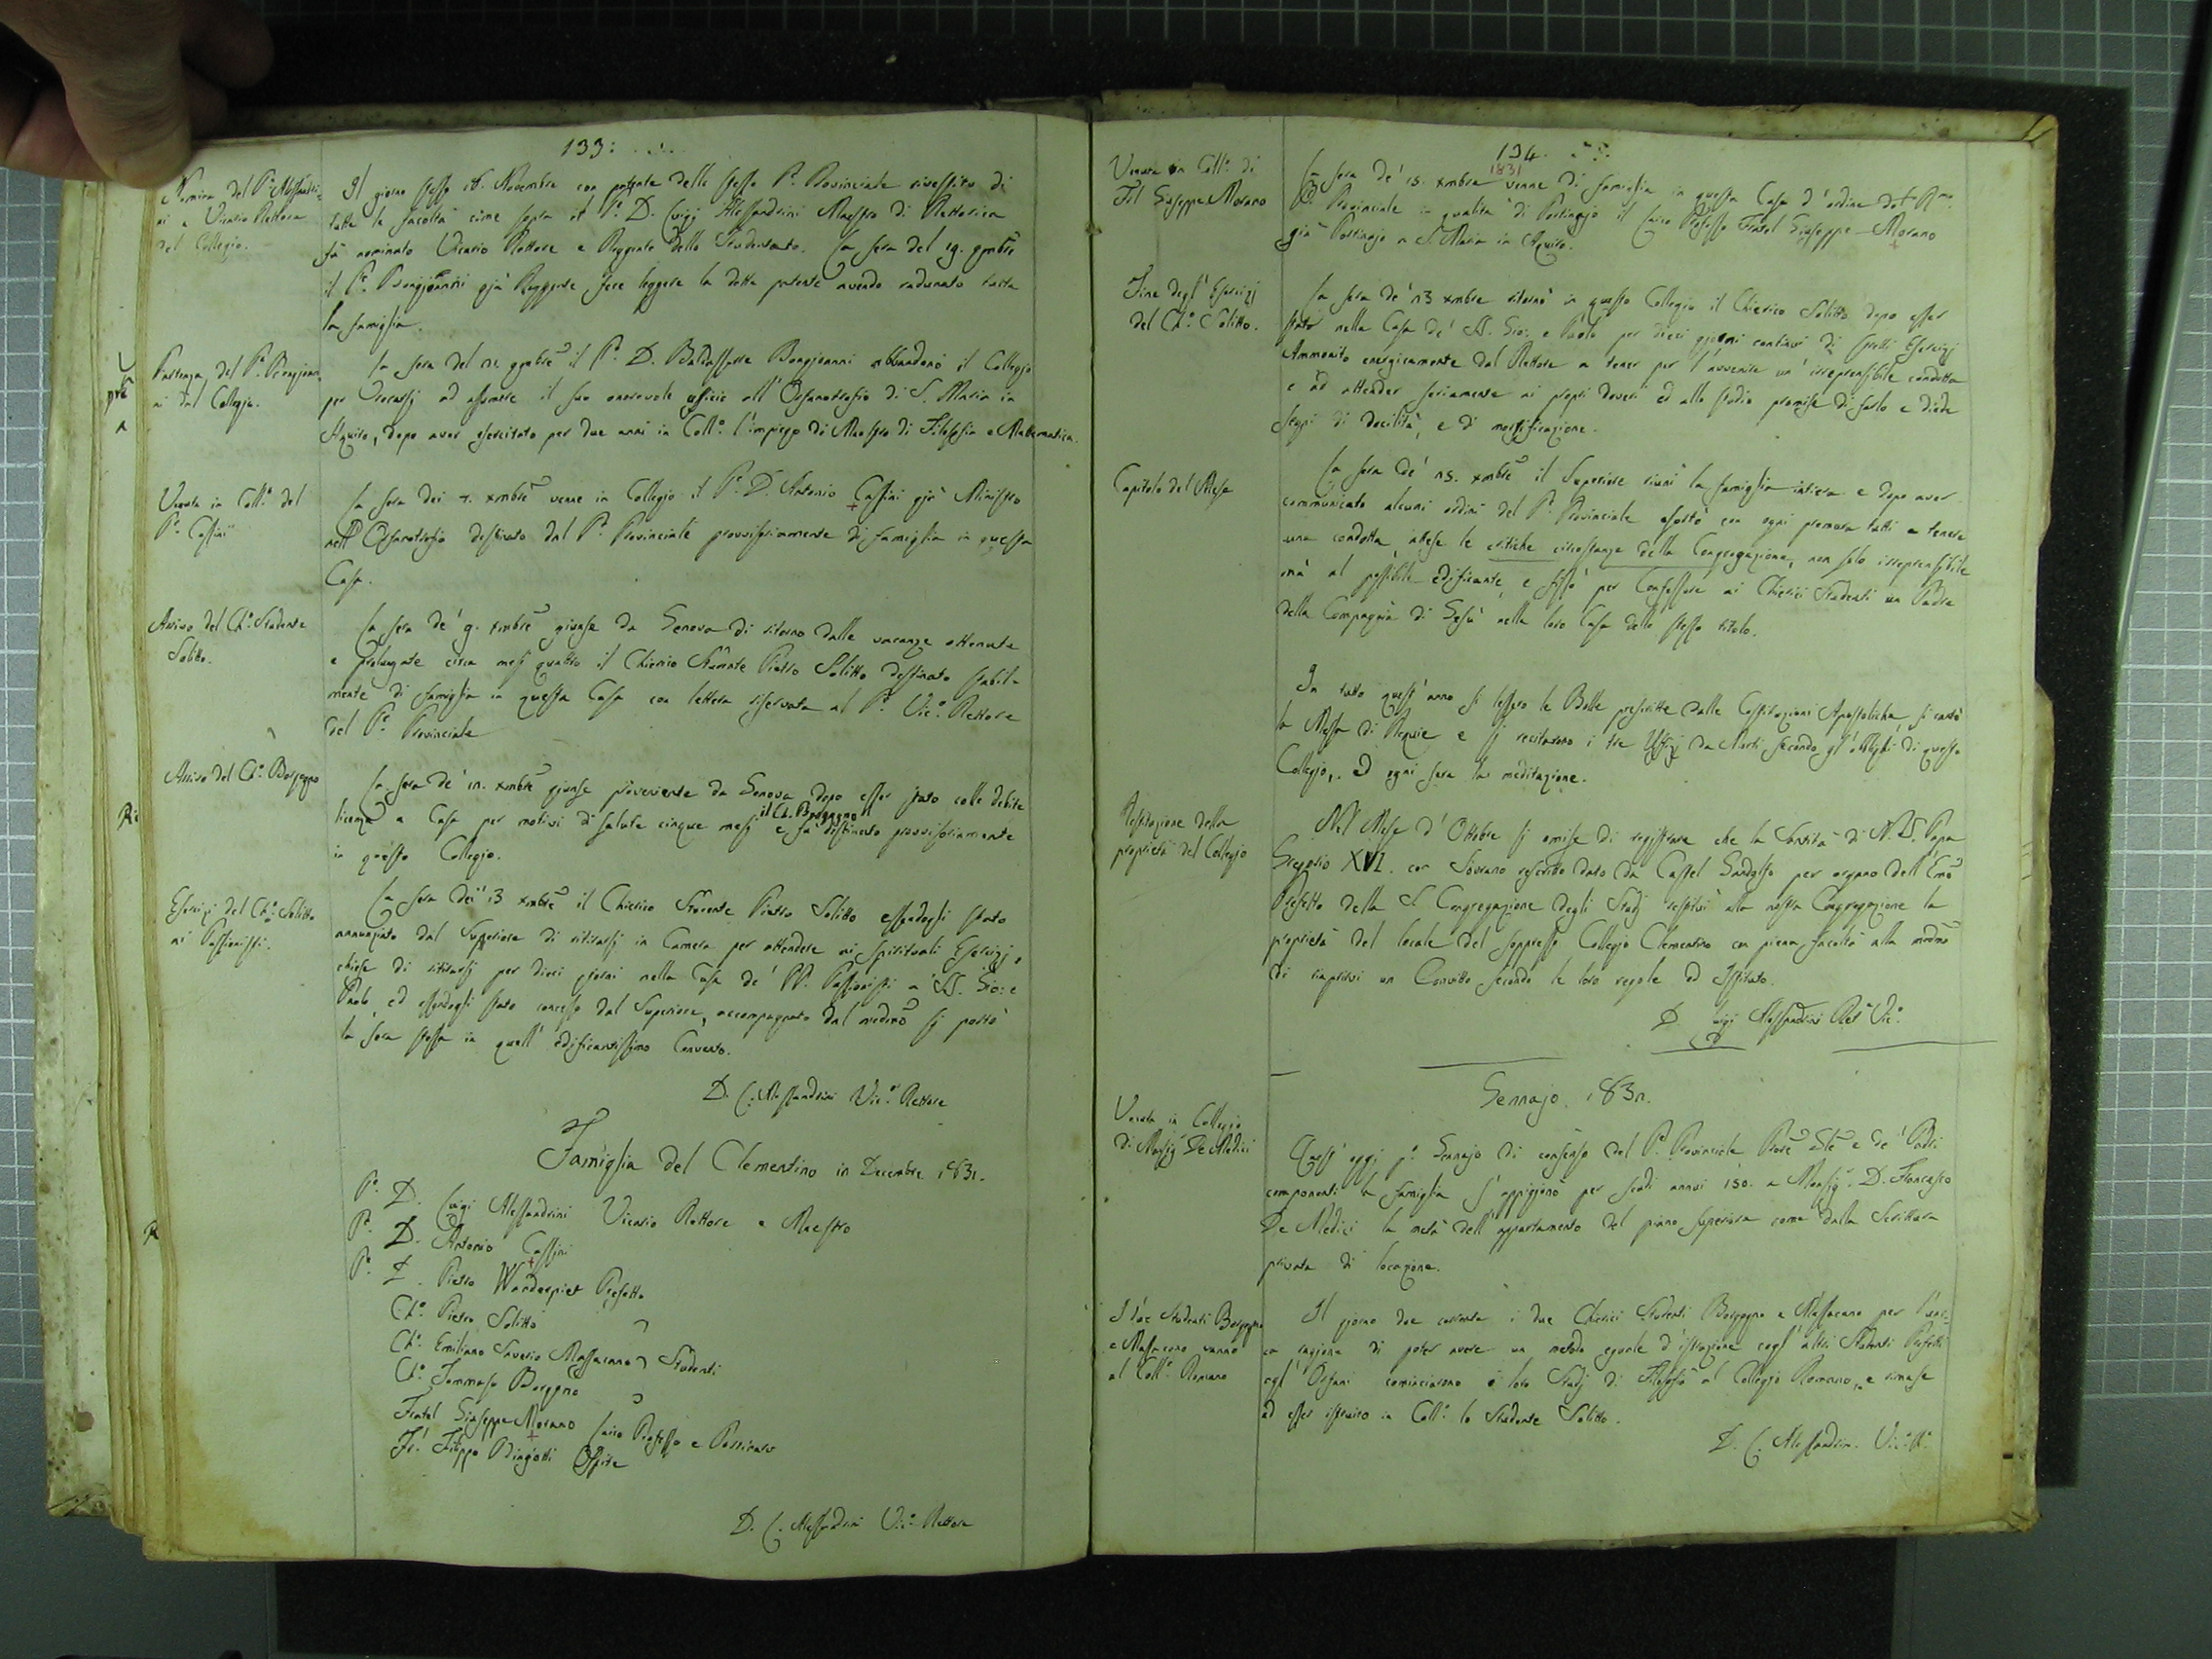 133:
Nomina del P. Alessandri-
ni a Vicario Rettore
del Collegio.
Il giorno stesso 18. Novembre con patente dello stesso P. Provinciale rivestito di
tutte le facoltà come sopra il P. D. Luigi Alessandrini Maestro di Rettorica
fù nominato Vicario Rettore e Reggente dello Studentato. La sera del 19. 9mbre
il P. Bongioanni già Reggente fece leggere la detta patente avendo radunato tutta
la famiglia.
Partenza del P. Bongioan-
ni dal Collegio.
La sera del 21. 9mbre il P. D. Baldassarre Bongioanni abbandonò il Collegio
per recarsi ad assumere il suo onorevole officio all'Orfanotrofio di S. Maria in
Aquiro, dopo aver esercitato per due anni in Coll.o l'impiego di Maestro di Filosofia e Matematica.
Venuta in Coll.o del
P. Cassini
La sera dei 7. Xmbre venne in Collegio il P. D. Antonio Cassini già Ministro
nell'Orfanotrofio destinato dal P. Provinciale provvisoriamente di famiglia in questa
Casa.
Arrivo del Ch.o Studente
Solitto.
La sera de' 9. Xmbre giunse da Genova di ritorno dalle vacanze ottenute
e prolungate circa mesi quattro il Chierico Studente Pietro Solitto destinato stabil-
mente di famiglia in questa Casa con lettera riservata al P. Vic.o Rettore
del P. Provinciale
Arrivo del Ch.o Borgogno
La sera de' 12. Xmbre giunse proveniente da Genova dopo esser stato colle debite
licenze a Casa per motivi di salute cinque mesi il Ch. Borgogno e fù destinato provvisoriamente
in questo Collegio.
Esercizi del Ch.o Solitto
ai Passionisti.
La sera dei 13 Xmbre il Chierico Studente Pietro Solitto essendogli stato
annunziato dal Superiore di ritirarsi in Camera per attendere ai Spirituali Esercizj,
chiese di ritirarsi per dieci giorni nella Casa de' PP. Passionisti a' SS. Gio: e
Paolo ed essendogli stato concesso dal Superiore, accompagnato dal medmo si portò
la sera stessa in quell'edificantissimo Convento.
D. L. Alessandrini Vic.o Rettore
Famiglia del Clementino in Decembre 1831.
P. D. Luigi Alessandrini Vicario Rettore e Maestro
P. D. Antonio Cassini
P. D. Pietro Wanderpiet Prefetto
Ch.o Pietro Solitto
Ch.o Emiliano Saverio Massacano Studenti
Ch.o Tommaso Borgogno
Fratel Giuseppe Morano Laico Professo e Portinaro
Fr. Filippo Biagiotti Ospite
D. L. Alessandrini Vic.o Rettore
134.
1831
Venuta in Coll.o di
Fel Giuseppe Morano
La sera de' 15. Xmbre venne di famiglia in questa Casa d'ordine del Rmo
P. Provinciale in qualità di Portinajo il Laico Professo Fratel Giuseppe Morano
già Portinajo a S. Maria in Aquiro.
Fine degl'Esercizj
del Ch.o Solitto.
La sera de' 23 Xmbre ritornò in questo Collegio il Chierico Solitto dopo esser
stato nella Casa de' SS. Gio: e Paolo per dieci giorni continui di spirli Esercizj
Ammonito energicamente dal Rettore a tener per l'avvenire un'irreprensibile condotta
e ad attender seriamente ai propri doveri ed allo studio promise di farlo e diede
segni di docilità, e di mortificazione.
Capitolo del Mese
La sera de' 25. Xmbre il Superiore riunì la famiglia intiera e dopo aver
communicato alcuni ordini del P. Provinciale esortò con ogni premura tutti a tenere
una condotta, attese le critiche circostanze della Congregazione, non solo irreprensibile
mà al possibile edificante, e fissò per Confessore ai Chierici Studenti un Padre
della Compagnia di Gesù nella loro Casa dello stesso titolo.
In tutto quest'anno si lessero le Bolle prescritte dalle Costituzioni Apostoliche, si cantò
la Messa di Requie e si recitarono i tre Uffizj da Morti secondo gl'obblighi di questo
Collegio, ed ogni sera la meditazione.
Restituzione della
proprietà del Collegio
Nel Mese d'Ottobre si omise di registrare che la Santità di N. S. Papa
Gregorio XVI. con Sovrano rescritto dato da Castel Gandolfo per organo dell'Emo
Prefetto della S. Congregazione degli Studj restituì alla nostra Congregazione la
proprietà del locale del soppresso Collegio Clementino con piena facoltà alla medma
di riaprirvi un Convitto secondo le loro regole ed Istituto.
D Luigi Alessandrini Ret Vic.o
Gennajo. 1832.
Venuta in Collegio
di Monsig De Medici
Quest'oggi p.o Gennajo di consenso del P. Provinciale e de' Padri
componenti la famiglia s'appiggionò per scudi annui 150. a Monsig. D. Francesco
De Medici la metà dell'appartamento del piano superiore come dalla Scrittura
privata di locazione.
I due Studenti Borgogno
e Massacano vanno
al Coll.o Romano
Il giorno due corrente i due Chierici Studenti Borgogno e Massacano per l'uni-
ca ragione di poter avere un metodo eguale d'istruzione cogl'altri Studenti Prefetti
agl'Orfani cominciarono i loro Studj di Filosofia al Collegio Romano, e rimase
ad esser istruito in Coll.o lo Studente Solitto.
D. L. Alessandrin. Vic.o R.